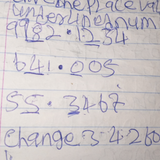 the place val
underlined num
9982.1234
641.005
55.3467
change 34260